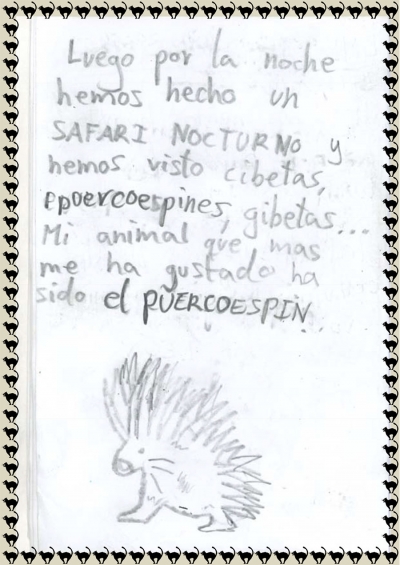 Luego por la noche
hemos hecho un
SAFARI NOCTURNO y
hemos visto cibetas,
puercoespines, gibetas...
Mi animal que mas
me ha gustado ha
sido el PUERCOESPIN...